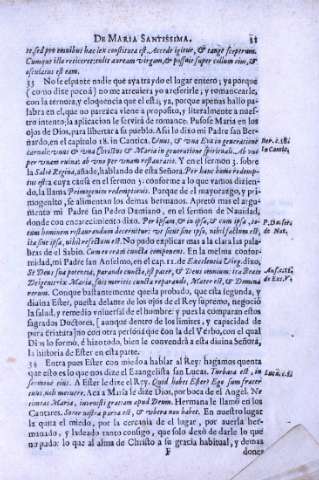 DE MARIA SANTISSIMA.
te, sed pro omnibus hac lex constituta est. Accede igitur, & tange sceptrum.
Cumque illa reticeret: tulit auream virgam, & possuit super collum eius, &
osculatus est eam.
33 No se espante nadie que aya traydo el lugar entero; ya porque
(como dize poco à) no me atreviera yo a referirle, y romancearle,
con la ternura, y eloquencia que el està, ya, porque apenas hallo palabra
en el, que no parezca viene a proposito, y literalmente a nuestro
intento; la aplicacion le servirà de romance. Pusose Maria en los
ojos de Dios, para libertar a su pueblo. Assi lo dixo mi Padre san Bernardo,
en el capitulo 18. in Cantica. Unus, & una Eva in generatione
carnali: unus & una Christus & Maria in generatione spirituali. Ab una
per unum ruina: ab uno per unam restauratio. Y en el sermon 3. sobre
la Salve Regina, añade, hablando de esta Señora. Per hanc homo redemptus
està cuya causa en el sermon 3. conforme a lo que vamos diziendo,
la llama Primogenita redemptoris. Porque de el mayorazgo, y primogenito,
se alimentan los demas hermanos. Apretò mas el argumento
mi Padre san Pedro Damiano, en el sermon de Natividad,
donde con encarecimiento dixo. Per ipsam, & in ipsa, & cum ipsa, totum
hominem restaurandum decernitur: ut sicut sine ipso, nihil factum est,
ita sine ipsa, nihil refectum est. No pudo explicar mas a la clara las palabras
de el Sabio. Cum eo eram cuncta componens. En la mesma conformidad,
mi Padre san Anselmo, en el cap. 11. de Excellencia Virg. dixo.
Si Deus sua potentia, parando cuncta, est pater, & Deus omnium: ita Beata
Dei genitrix Maria, suis meritis cuncta reparando, Mater est, & Domina
rerum. Conque bastantemente queda probado, que esta segunda, y
divina Ester, puesta delante de los ojos de el Rey supremo, negociò
la salud, y remedio universal de el hombre: y pues la comparan estos
sagrados Doctores, (aunque dentro de los limites, y capacidad de
pura criatura) no con otra persona que con la del Verbo, con el qual
Dios lo formò, è hizo todo, bien le convendrà a esta divina Señora,
la historia de Ester en esta parte.
34 Entra pues Ester con miedo a hablar al Rey: hagamos quenta
que esto es lo que nos dize el Evangelista san Lucas. Turbata est, in
sermone eius. A Ester le dize el Rey. Quid habes Ester? Ego sum frater
tuus, noli metuere. Acà a Maria le dize Dios, por boca de el Angel. Ne
timeas Maria, invenisti gratiam apud Deum. Hermana le llamò en los
Cantares. Soror nostra parva est, & ubera non habet. En nuestro lugar
la quita el miedo, por la cercania de el lugar, por averla hermanado,
y ladeado tanto consigo, que solo dexò de darla lo que
no pudo: lo que al alma de Christo a su gracia habitual, y demas
F
dones
in Cantic.
P. Damia.
de Nat.
de Exc. V.
Luc. 1.